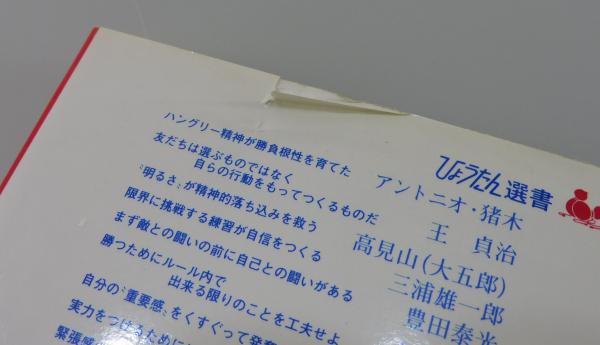 ひょうたん選書
アントニオ・猪木
王 貞治
高見山(大五郎)
三浦雄一郎
豊田泰光
ハングリー精神が勝負根性を育てた
友だちは選ぶものではなく
自らの行動をもってつくるものだ
〝明るさ〟が精神的落ち込みを救う
限界に挑戦する練習が自信をつくる
まず敵との闘いの前に自己との闘いがある
勝つためにルール内で
出来る限りのことを工夫せよ
自分の〝重要感〟をくすぐって発奮
実力をつけるために
緊張感